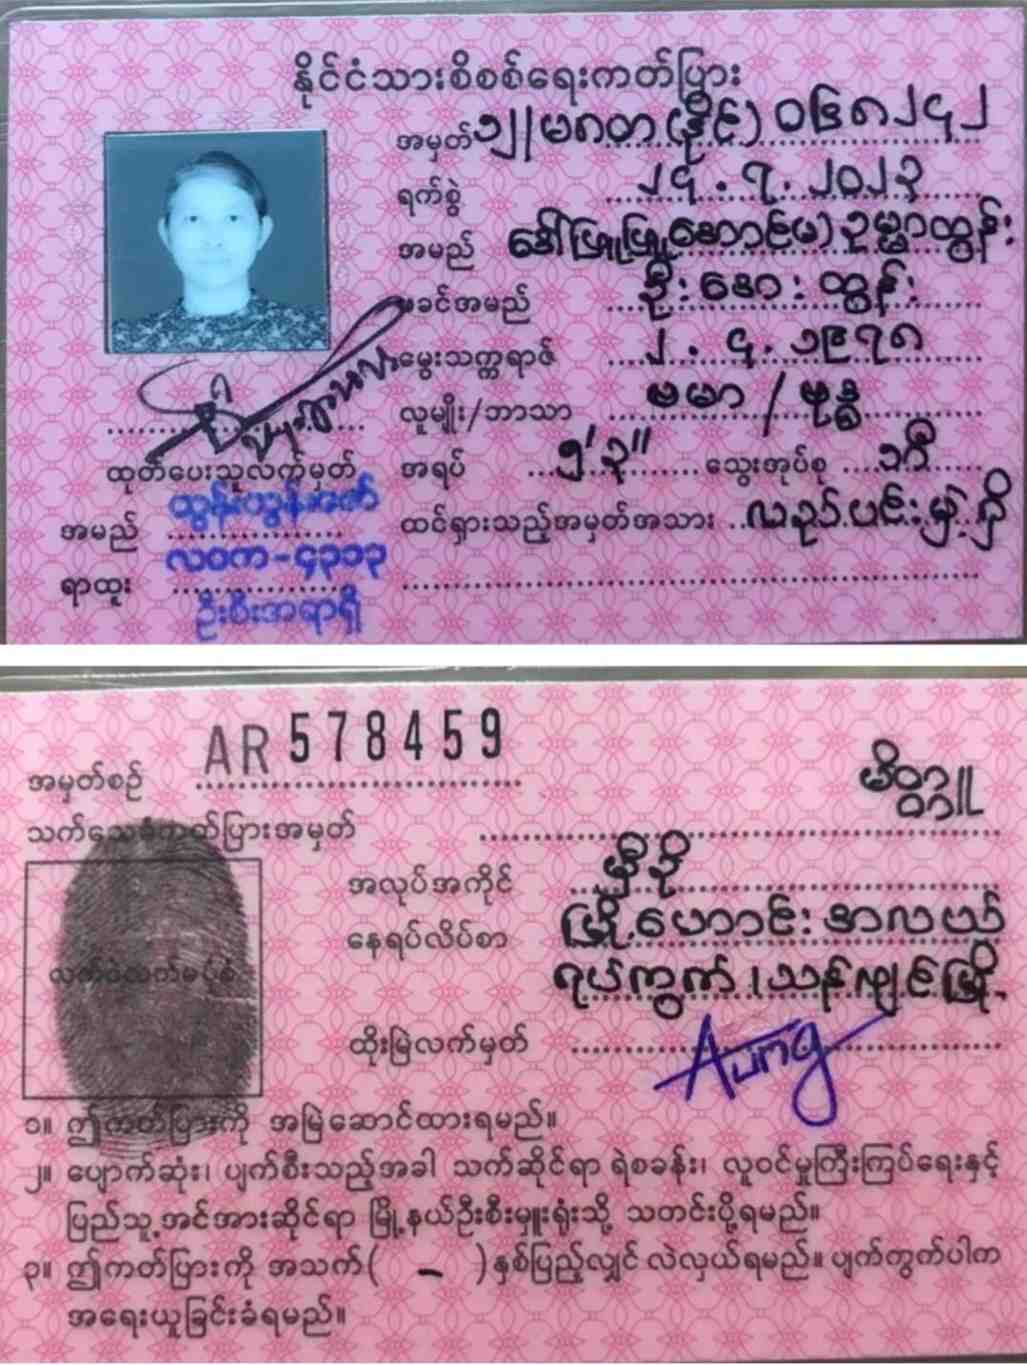 နိုင်ငံသားစိစစ်ရေးကတ်ပြား
အမှတ် ၁၂/မဂတ(နိုင်)၀၆၈၂၄၂
ရက်စွဲ ၂၄.၇.၂၀၂၃
အမည် ဒေါ်ဖြူဖြူအောင်(ခ)ဥမ္မာထွန်း
ဖခင်အမည် ဦးအေးထွန်း
မွေးသက္ကရာဇ် ၂.၄.၁၉၇၈
လူမျိုး/ဘာသာ ဗမာ / ဗုဒ္ဓ
အရပ် ၅'၃" သွေးအုပ်စု အို
ထင်ရှားသည့်အမှတ်အသား လည်ပင်းမှဲ့ရှိ
ထုတ်ပေးသူလက်မှတ်
အမည် ထွန်းထွန်းဇော်
ရာထူး လဝက-၄၃၁၃
ဦးစီးအရာရှိ
အမှတ်စဉ် AR 578459
သက်သေခံကတ်ပြားအမှတ်
အလုပ်အကိုင် မှီခို
နေရပ်လိပ်စာ မြို့ဟောင်းအလယ်
ရပ်ကွက်၊သန်လျင်မြို့
ထိုးမြဲလက်မှတ် Aung
၁။ ဤကတ်ပြားကို အမြဲဆောင်ထားရမည်။
၂။ ပျောက်ဆုံး၊ ပျက်စီးသည့်အခါ သက်ဆိုင်ရာ ရဲစခန်း၊ လူဝင်မှုကြီးကြပ်ရေးနှင့်
ပြည်သူ့အင်အားဆိုင်ရာ မြို့နယ်ဦးစီးမှူးရုံးသို့ သတင်းပို့ရမည်။
၃။ ဤကတ်ပြားကို အသက်( - )နှစ်ပြည့်လျှင် လဲလှယ်ရမည်။ ပျက်ကွက်ပါက
အရေးယူခြင်းခံရမည်။